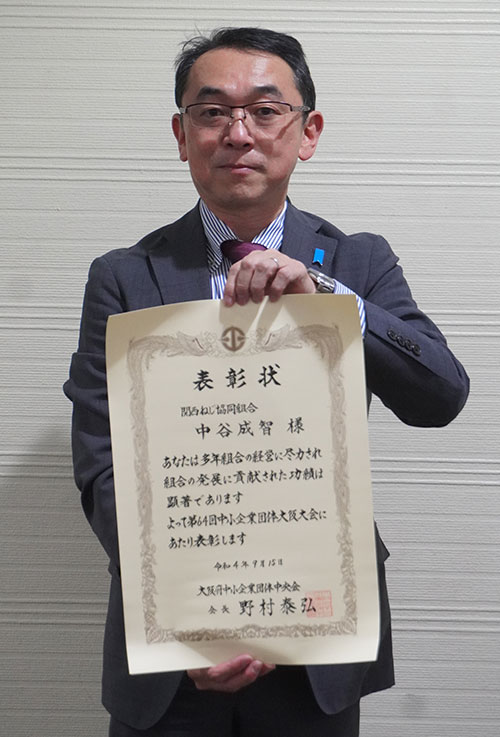 表彰状
関西ねじ協同組合
中谷成智 様
あなたは多年組合の経営に尽力され
組合の発展に貢献された功績は
顕著であります
よって第64回中小企業団体大阪大会に
あたり表彰します
令和4年9月15日
大阪府中小企業団体中央会
会長 野村泰弘